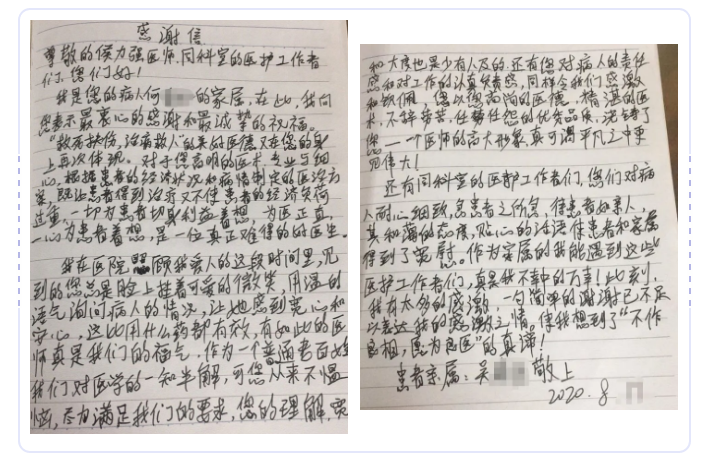 感谢信
尊敬的侯力强医师、同科室的医护工作者
们、您们好！
我是您的病人何 的家属，在此，我向
您表示最衷心的感谢和最诚挚的祝福。
“救死扶伤，治病救人”的美好医德又在您的身
上再次体现。对于您高明的医术，专业与细
心，根据患者的经济状况和病情制定的医治方
案，既让患者得到治疗又不使患者的经济负荷
过重。一切为患者切身利益着想，为医正直，
一心为患者着想，是一位真正难得的好医生。
我在医院照顾我爱人的这段时间里，见
到的您总是脸上挂着可爱的微笑，用温的
语气询问病人的情况，让她感到宽心和
安心，这比用什么药都有效，有如此的医
师真是我们的福气。作为一个普通老百姓
我们对医学的一知半解，可您从来不愠
恼，尽力满足我们的要求，您的理解、宽
和大度也是少有人及的。还有您对病人的责任
感和对工作的认真负责感，同样令我们感激
和钦佩，您以您高尚的医德，精湛的医
术，不辞劳苦，任劳任怨的优秀品质，浇铸了
您一个医师的高大形象，真可谓平凡之中更
见伟大！
还有同科室的医护工作者们，您们对病
人耐心细致，急患者之所急，待患者如亲人，
其和蔼的态度，贴心的话语使患者和家属
得到了宽慰。作为家属的我能遇到这些
医护工作者们，真是我不幸中的万幸！此刻，
我有太多的感激，一句简单的谢谢已不足
以表达我的感激之情，使我想到了“不作
良相，愿为良医”的真谛！
患者亲属：吴 敬上
2020.8